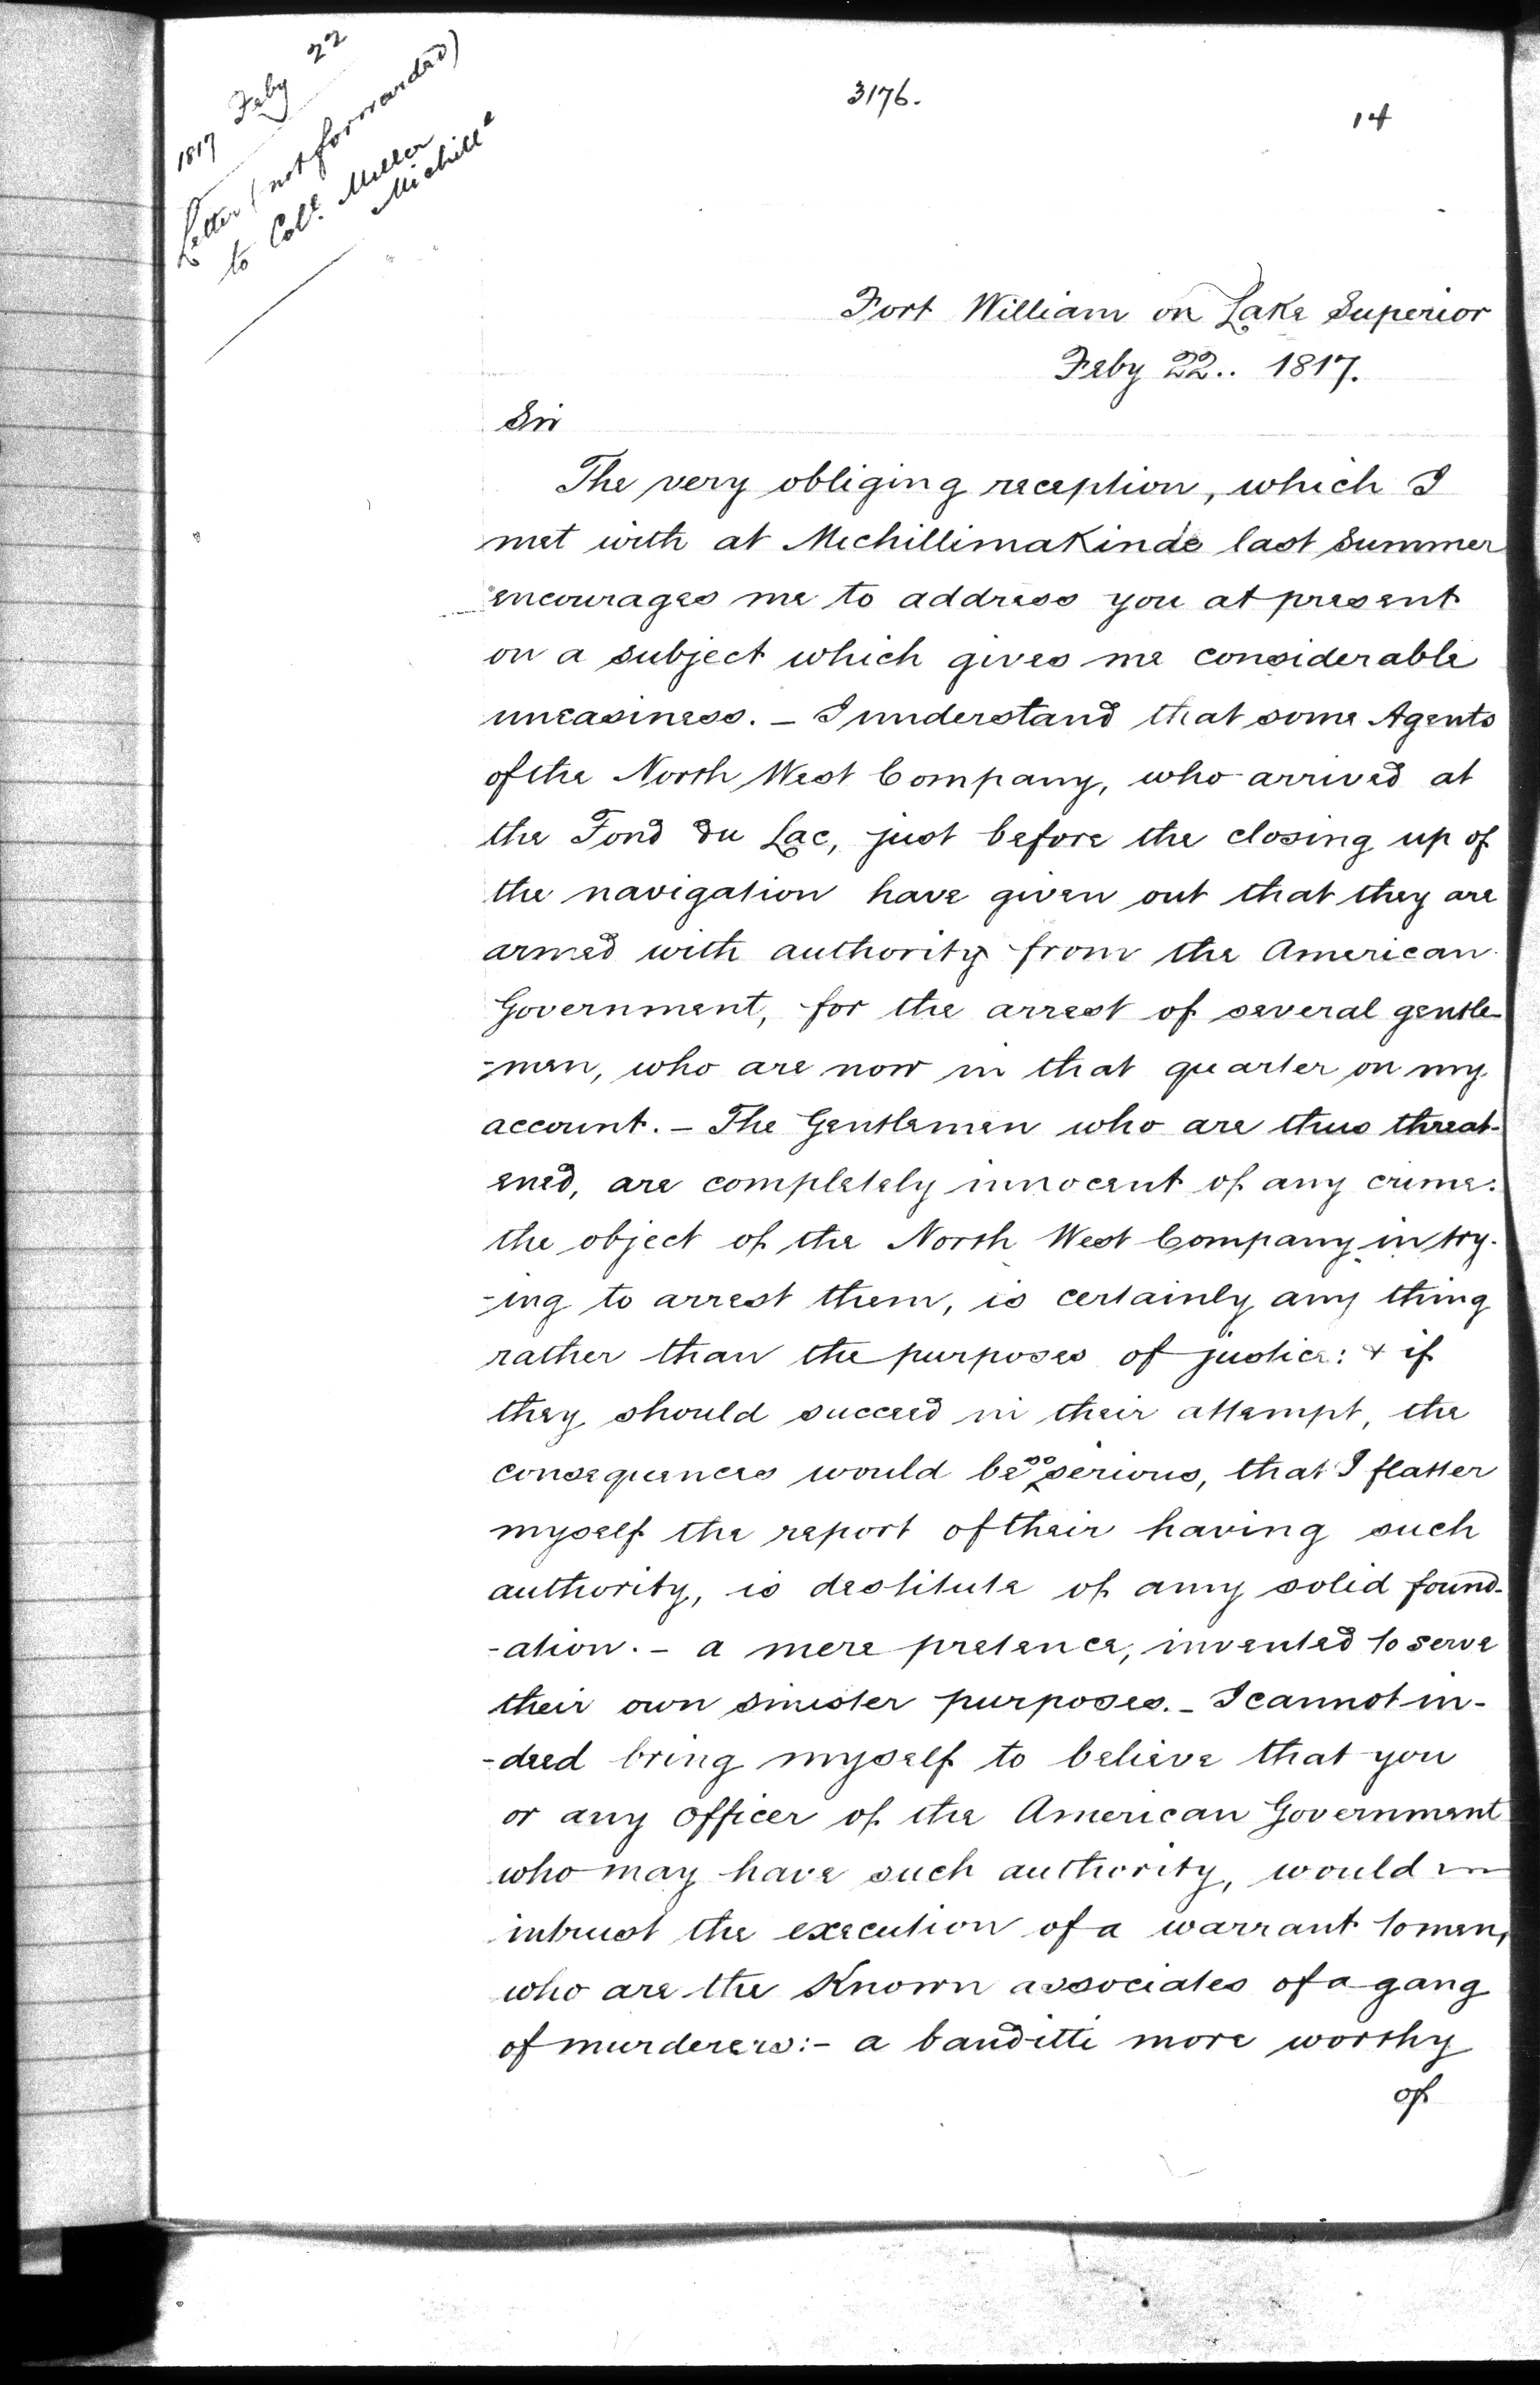 1817 Feby 22
Letter (not forwarded)
to Col.l Miller
Michill.a
3176.
14
Fort William on Lake Superior
Feby 22.. 1817.
Sir
The very obliging reception, which I
met with at Mechillimakinde last Summer
encourages me to address you at present
on a subject which gives me considerable
uneasiness. _ I understand that some Agents
of the North West Company, who arrived at
the Fond du Lac, just before the closing up of
the navigation have given out that they are
armed with authority from the American
Government, for the arrest of several gentle-
-men, who are now in that quarter on my
account. _ The Gentlemen who are thus threat-
ened, are completely innocent of any crime:
the object of the North West Company in try-
-ing to arrest them, is certainly any thing
rather than the purposes of justice: & if
they should succeed in their attempt, the
consequences would be so serious, that I flatter
myself the report of their having such
authority, is destitute of any solid found-
-ation. - a mere pretence, invented to serve
their own sinister purposes. _ I cannot in-
-deed bring myself to believe that you
or any officer of the American Government
who may have such authority, would
intrust the execution of a warrant to men,
who are the Known associates of a gang
of murderers: - a banditti more worthy
of